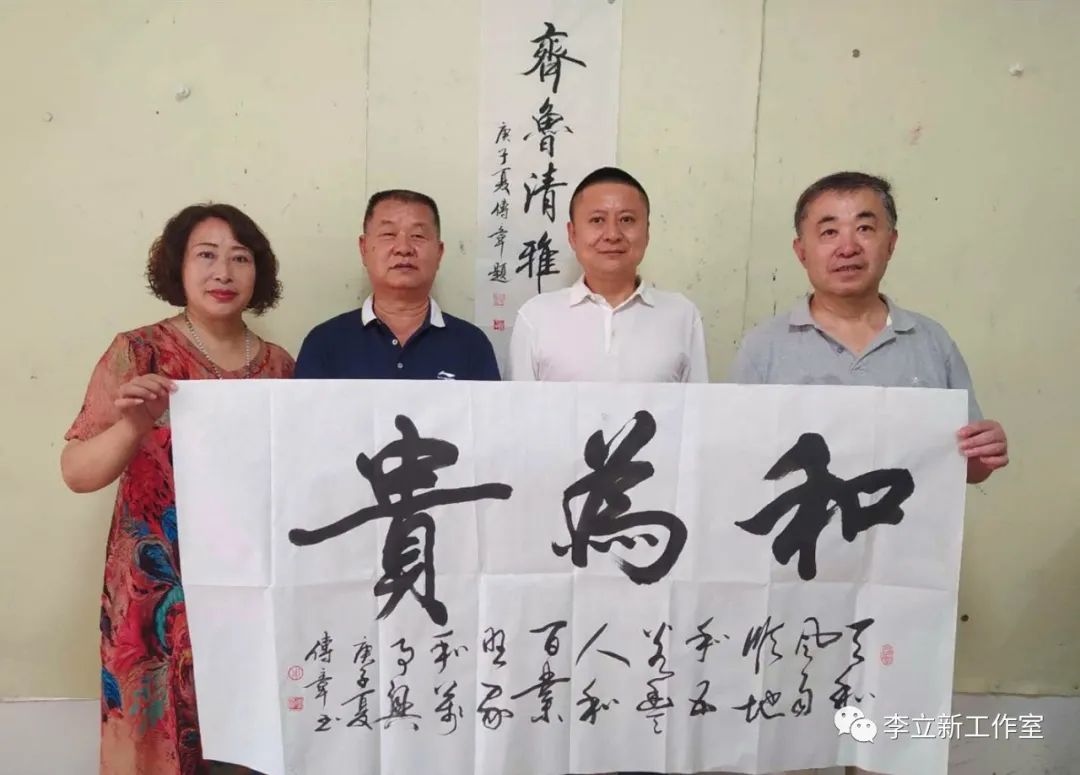 齊魯清雅
庚子夏傳章題
和為貴
天和
風雨
順地
和五
谷豐
人和
百業
旺家
和萬
事興
庚子夏
傳章书
李立新工作室